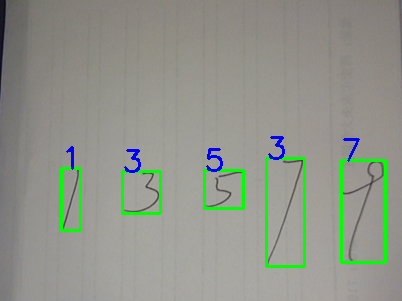 1 3 5 3 7
1 3 5 7 9